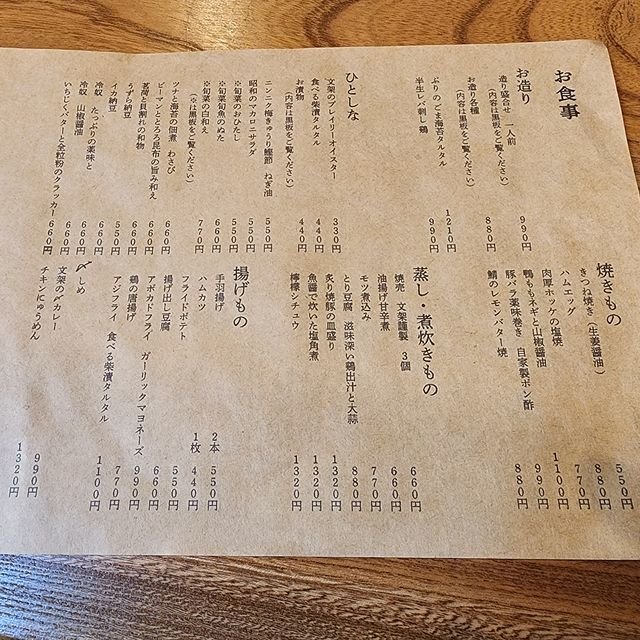 お食事
お造り
造り盛合せ 一人前 990円
(内容は黒板をご覧ください)
お造り各種 880円
(内容は黒板をご覧ください)
ぶりのごま海苔タルタル 1210円
半生レバ刺し鶏 990円
ひとしな
文架のブレイリーオイスター 330円
食べる柴漬タルタル 440円
お漬物 440円
(内容は黒板をご覧ください)
ニンニク梅きゅうり鰹節 ねぎ油 550円
昭和のマカロニサラダ 550円
※旬菜のおひたし 550円
※旬菜旬魚のぬた 660円
※旬菜の白和え 770円
(※は黒板をご覧ください)
ツナと海苔の佃煮 わさび 660円
ピーマンととろろ昆布の旨み和え 660円
茗荷と貝割れの和物 660円
うずら納豆 660円
イカ納豆 550円
冷奴 たっぷりの薬味と 660円
冷奴 山椒醤油 660円
いちじくバターと全粒粉のクラッカー 660円
焼きもの
きつね焼き(生姜醤油) 550円
ハムエッグ 880円
肉厚ホッケの塩焼 1100円
鴨ももネギと山椒醤油
豚バラ薬味巻き 自家製ポン酢 990円
鯖のレモンバター焼 880円
蒸し・煮炊きもの
焼売 文架謹製 3個 660円
油揚げ甘辛煮 660円
モツ煮込み 770円
とり豆腐 滋味深い鶏出汁と大蒜 880円
炙り焼豚の皿盛り 1320円
魚醤で炊いた塩角煮 1320円
檸檬シチュウ 1320円
揚げもの
手羽揚げ 2本 550円
ハムカツ 1枚 440円
フライドポテト 550円
揚げ出し豆腐 660円
アボカドフライ ガーリックマヨネーズ 990円
鶏の唐揚げ 770円
アジフライ 食べる柴漬タルタル 1100円
〆 しめ
文架の〆カレー 990円
チキンにゅうめん 1320円